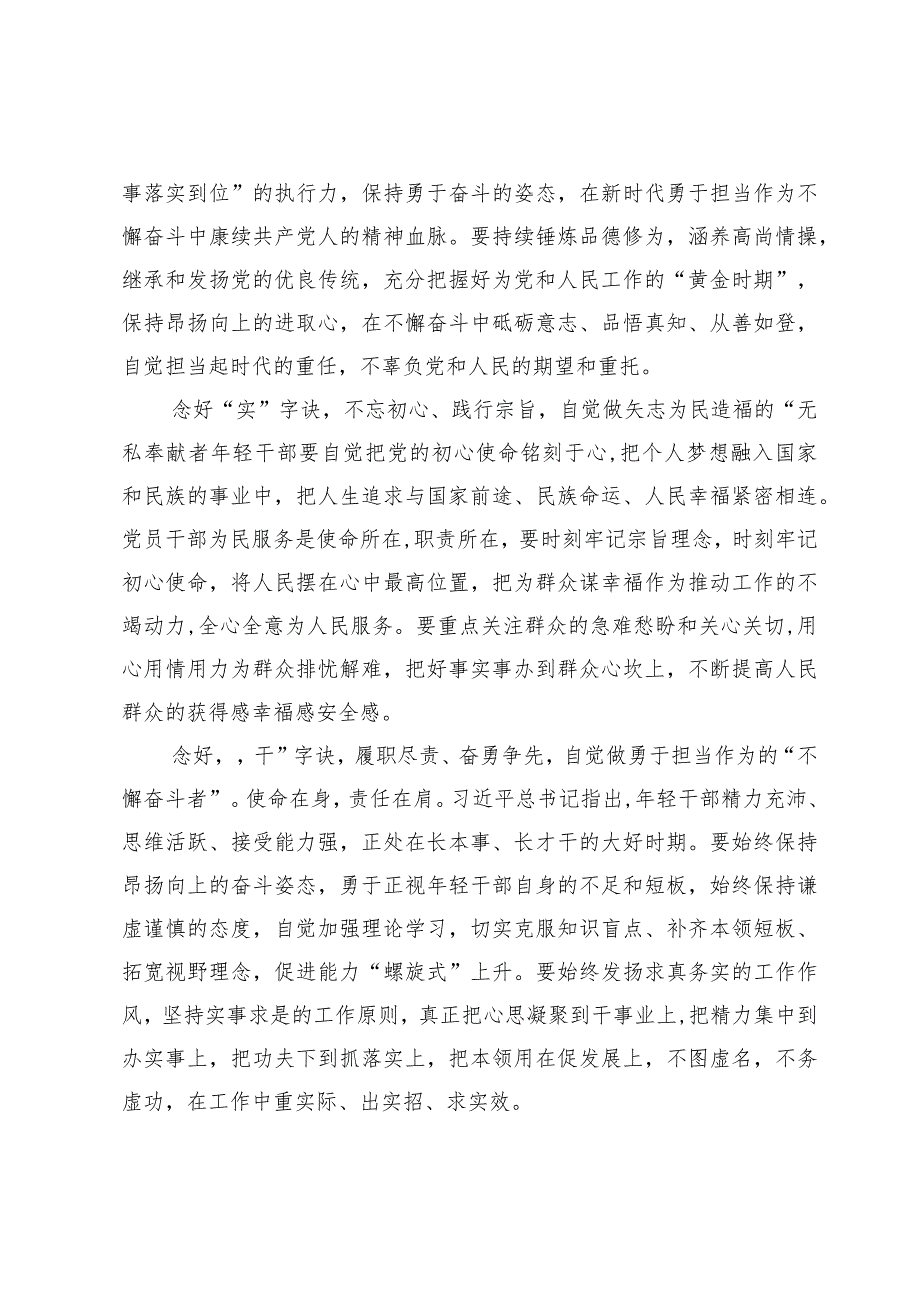 事落实到位”的执行力，保持勇于奋斗的姿态，在新时代勇于担当作为不
懈奋斗中赓续共产党人的精神血脉。要持续锤炼品德修为，涵养高尚情操，
继承和发扬党的优良传统，充分把握好为党和人民工作的“黄金时期”，
保持昂扬向上的进取心，在不懈奋斗中砥砺意志、品悟真知、从善如登，
自觉担当起时代的重任，不辜负党和人民的期望和重托。
念好“实”字诀，不忘初心、践行宗旨，自觉做矢志为民造福的“无
私奉献者年轻干部要自觉把党的初心使命铭刻于心,把个人梦想融入国家
和民族的事业中，把人生追求与国家前途、民族命运、人民幸福紧密相连。
党员干部为民服务是使命所在,职责所在，要时刻牢记宗旨理念，时刻牢记
初心使命，将人民摆在心中最高位置，把为群众谋幸福作为推动工作的不
竭动力,全心全意为人民服务。要重点关注群众的急难愁盼和关心关切,用
心用情用力为群众排忧解难，把好事实事办到群众心坎上，不断提高人民
群众的获得感幸福感安全感。
念好，，干”字诀，履职尽责、奋勇争先，自觉做勇于担当作为的“不
懈奋斗者”。使命在身，责任在肩。习近平总书记指出,年轻干部精力充沛、
思维活跃、接受能力强，正处在长本事、长才干的大好时期。要始终保持
昂扬向上的奋斗姿态，勇于正视年轻干部自身的不足和短板，始终保持谦
虚谨慎的态度，自觉加强理论学习，切实克服知识盲点、补齐本领短板、
拓宽视野理念，促进能力“螺旋式”上升。要始终发扬求真务实的工作作
风，坚持实事求是的工作原则，真正把心思凝聚到干事业上,把精力集中到
办实事上，把功夫下到抓落实上，把本领用在促发展上，不图虚名，不务
虚功，在工作中重实际、出实招、求实效。